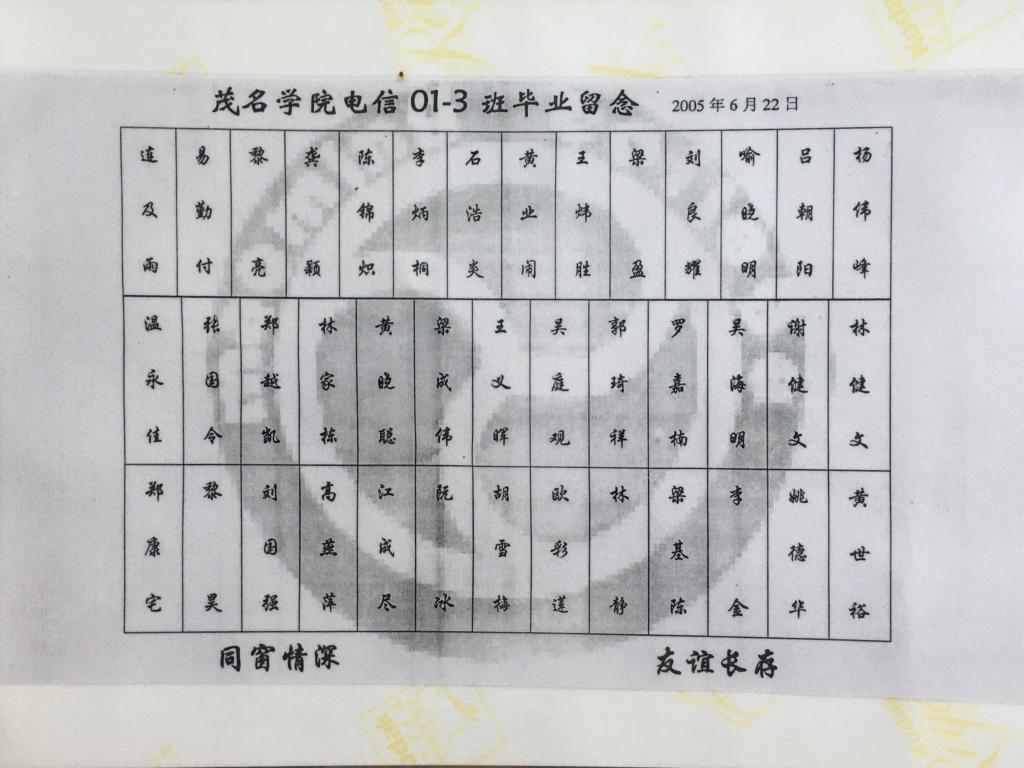 茂名学院电信 01-3 班毕业留念 2005 年 6 月 22 日
连及雨 易勤付 黎亮 龚颖 陈锦炽 李炳桐 石浩炎 黄业闹 王炜胜 梁盈 刘良耀 喻晓明 吕朝阳 杨伟峰
温永佳 张国令 郑越凯 林家栋 黄晓聪 梁成伟 王义晖 吴庭观 郭琦祥 罗嘉楠 吴海明 谢健文 林健文
郑康宅 黎昊 刘国强 高燕萍 江成尽 阮冰 胡雪梅 欧彩莲 林静 梁基陈 李金 姚德华 黄世裕
同窗情深 友谊长存
Kodak
Kodak